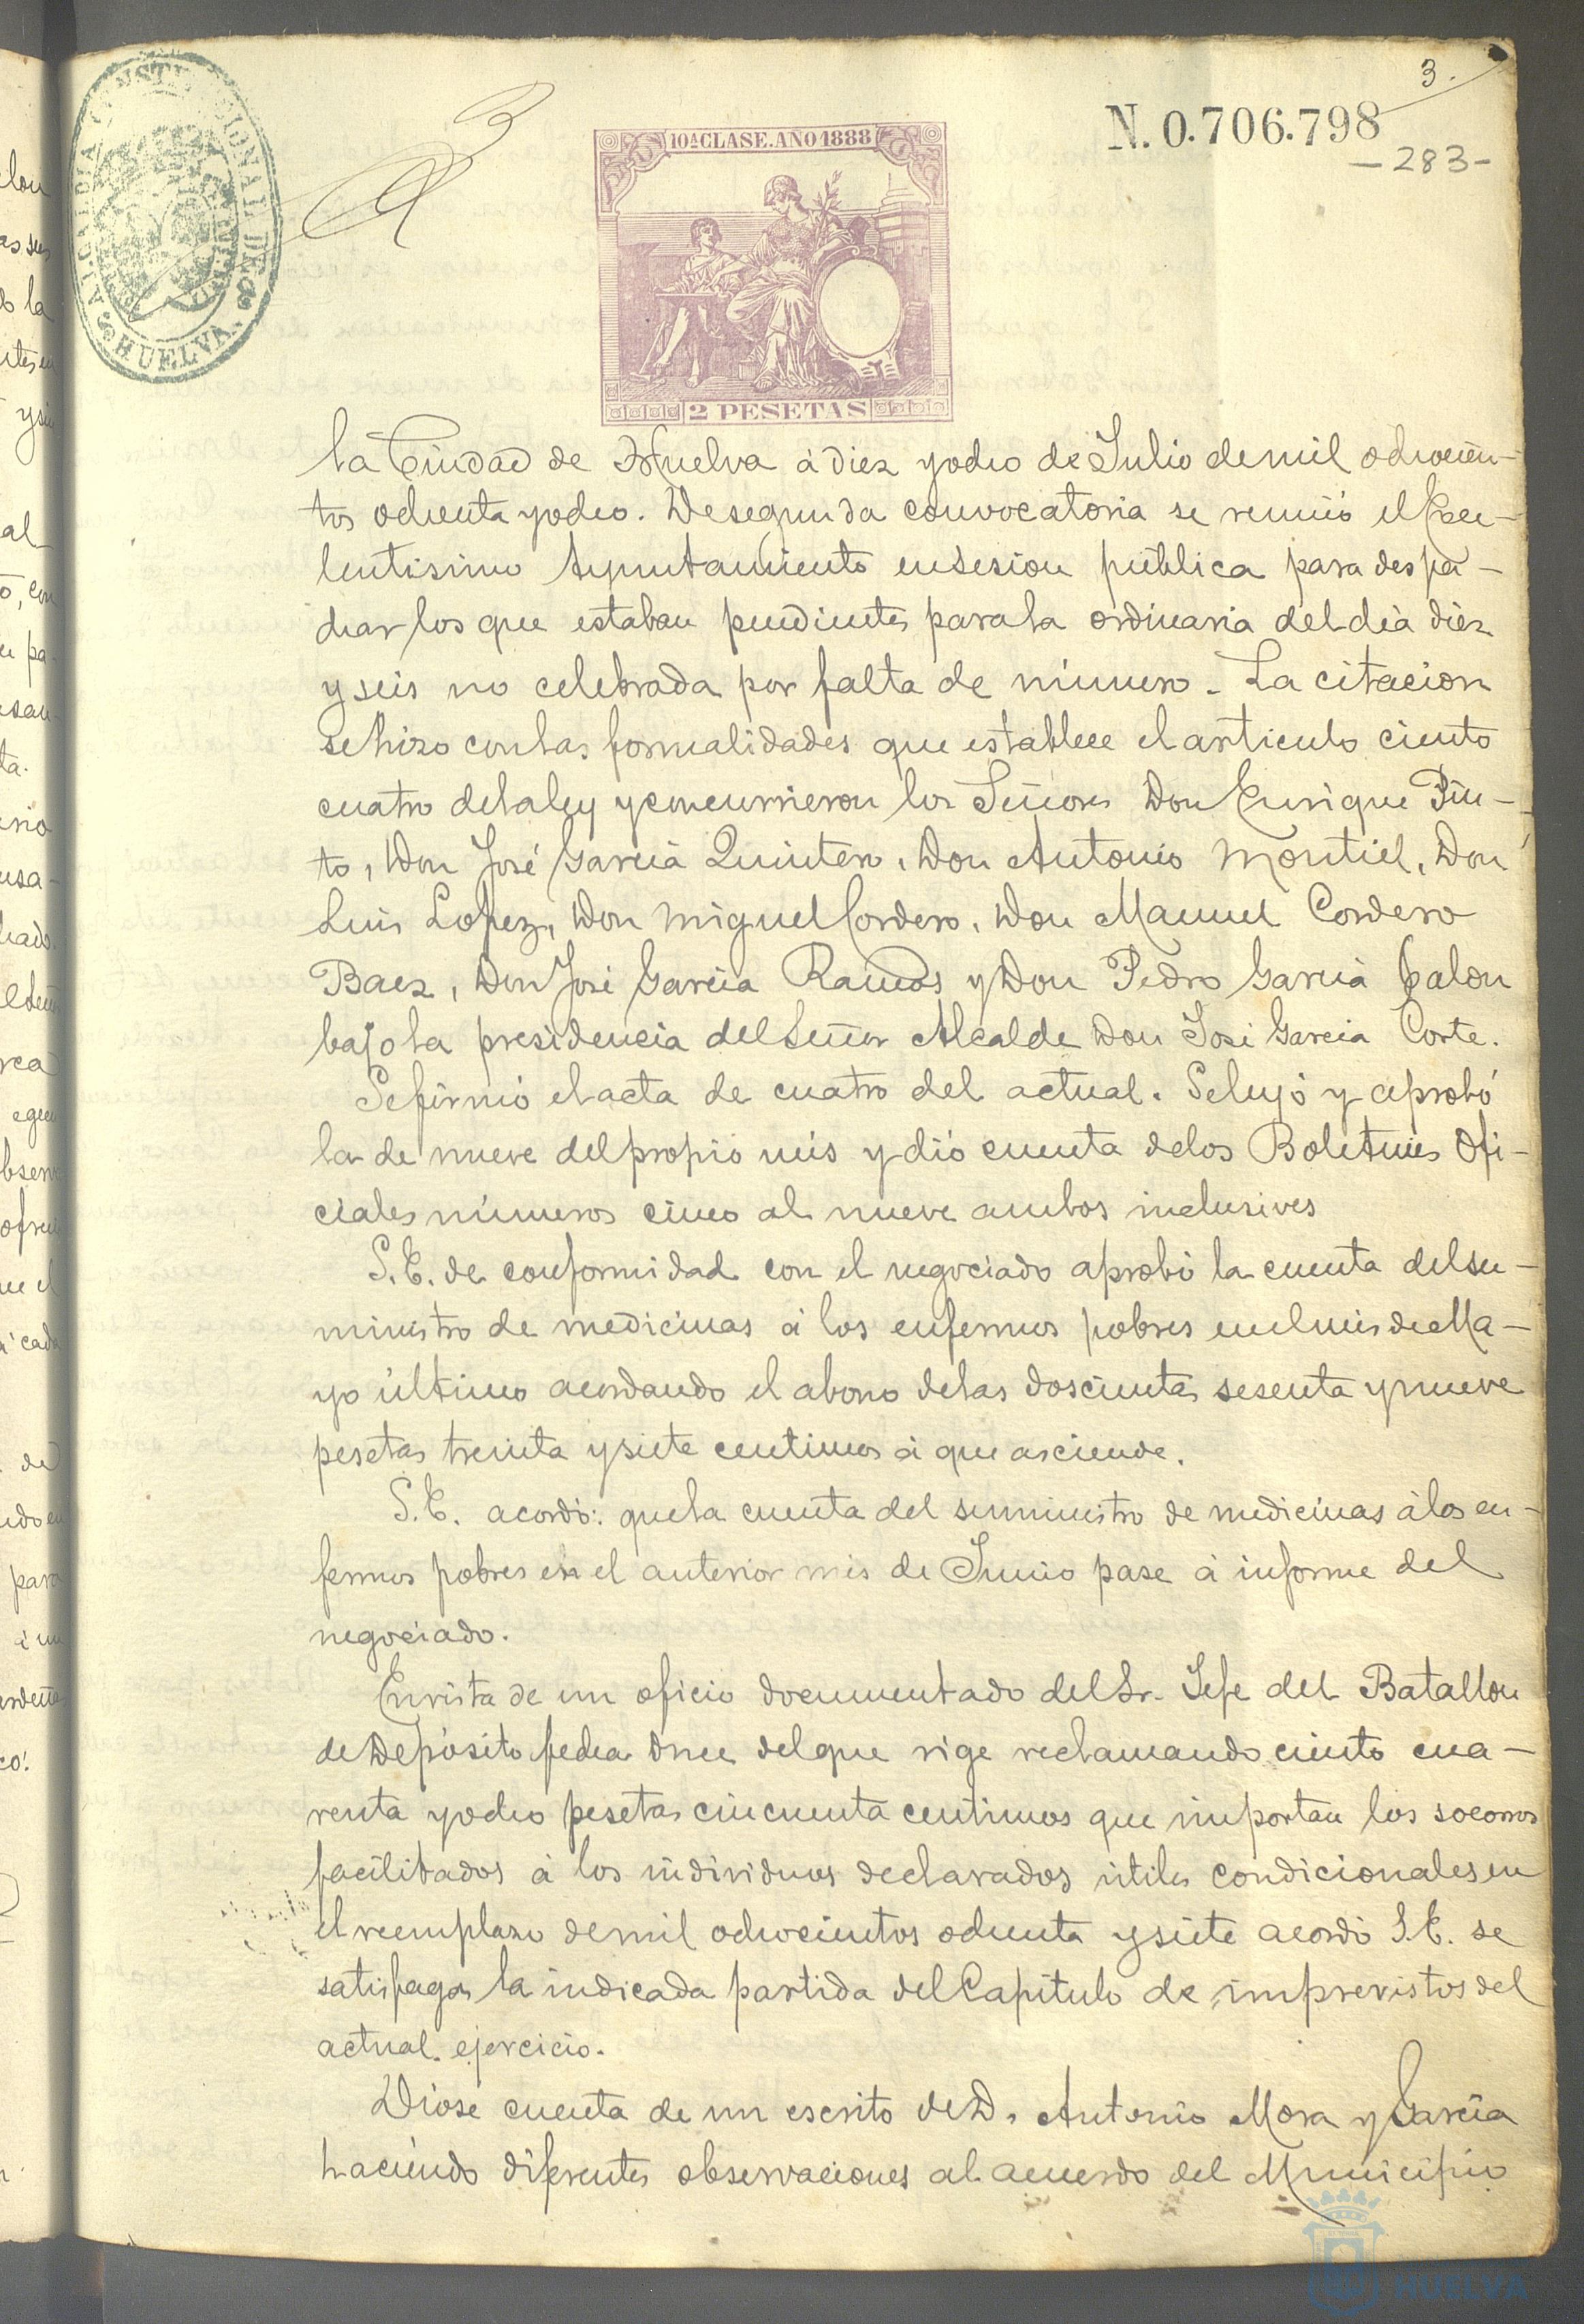 3.
N.0.706.798
-283-
ALCALDIA CONSTITUCIONAL DE
HUELVA.
10ª CLASE. AÑO 1888
2 PESETAS
la Ciudad de Huelva á diez y ocho de Julio de mil ochocien-
tos ochenta y ocho. De segunda convocatoria se reunió el Exce-
lentisimo Ayuntamiento en sesion pública para despa-
char los que estaban pendientes para la ordinaria del dia diez
y seis no celebrada por falta de número. La citacion
se hizo con las formalidades que establece el articulo ciento
cuatro de la ley y concurrieron los Señores Don Enrique Pin-
to, Don José Garcia Quintero, Don Antonio Montiel, Don
Luis Lopez, Don Miguel Cordero, Don Manuel Cordero
Baez, Don José Garcia Ramos y Don Pedro Garcia Calon
bajo la presidencia del Señor Alcalde Don José Garcia Corte.
Se firmó el acta de cuatro del actual. Se leyó y aprobó
la de nueve del propio mes y dió cuenta de los Boletines Ofi-
ciales números cinco al nueve ambos inclusives
S.E. de conformidad con el negociado aprobó la cuenta del su-
ministro de medicinas á los enfermos pobres en el mes de Ma-
yo último acordando el abono de las doscientas sesenta y nueve
pesetas treinta y siete centimos á que asciende.
S.E. acordó: que la cuenta del suministro de medicinas á los en-
fermos pobres en el anterior mes de Junio pase á informe del
negociado.
En vista de un oficio documentado del Sr. Jefe del Batallon
de Depósito fecha once del que rige reclamando ciento cua-
renta y ocho pesetas cincuenta centimos que importan los socorros
facilitados á los individuos declarados útiles condicionales en
el reemplazo de mil ochocientos ochenta y siete acordó S.E. se
satisfaga la indicada partida del Capitulo de imprevistos del
actual ejercicio.
Dióse cuenta de un escrito de D. Antonio Mora y Garcia
haciendo diferentes observaciones al acuerdo del Municipio
HUELVA